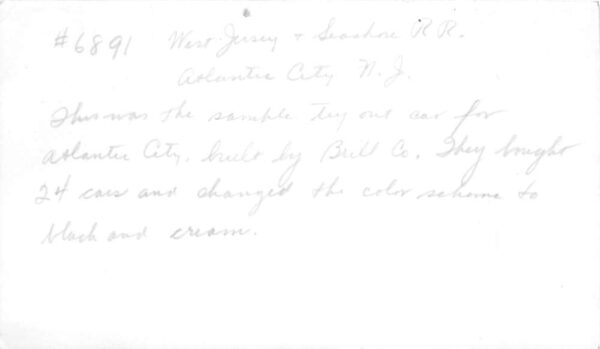 #6891 West Jersey & Seashore R.R.
Atlantic City N.J.
This was the sample try out car for
Atlantic City, built by Brill Co. They bought
24 cars and changed the color scheme to
black and cream.